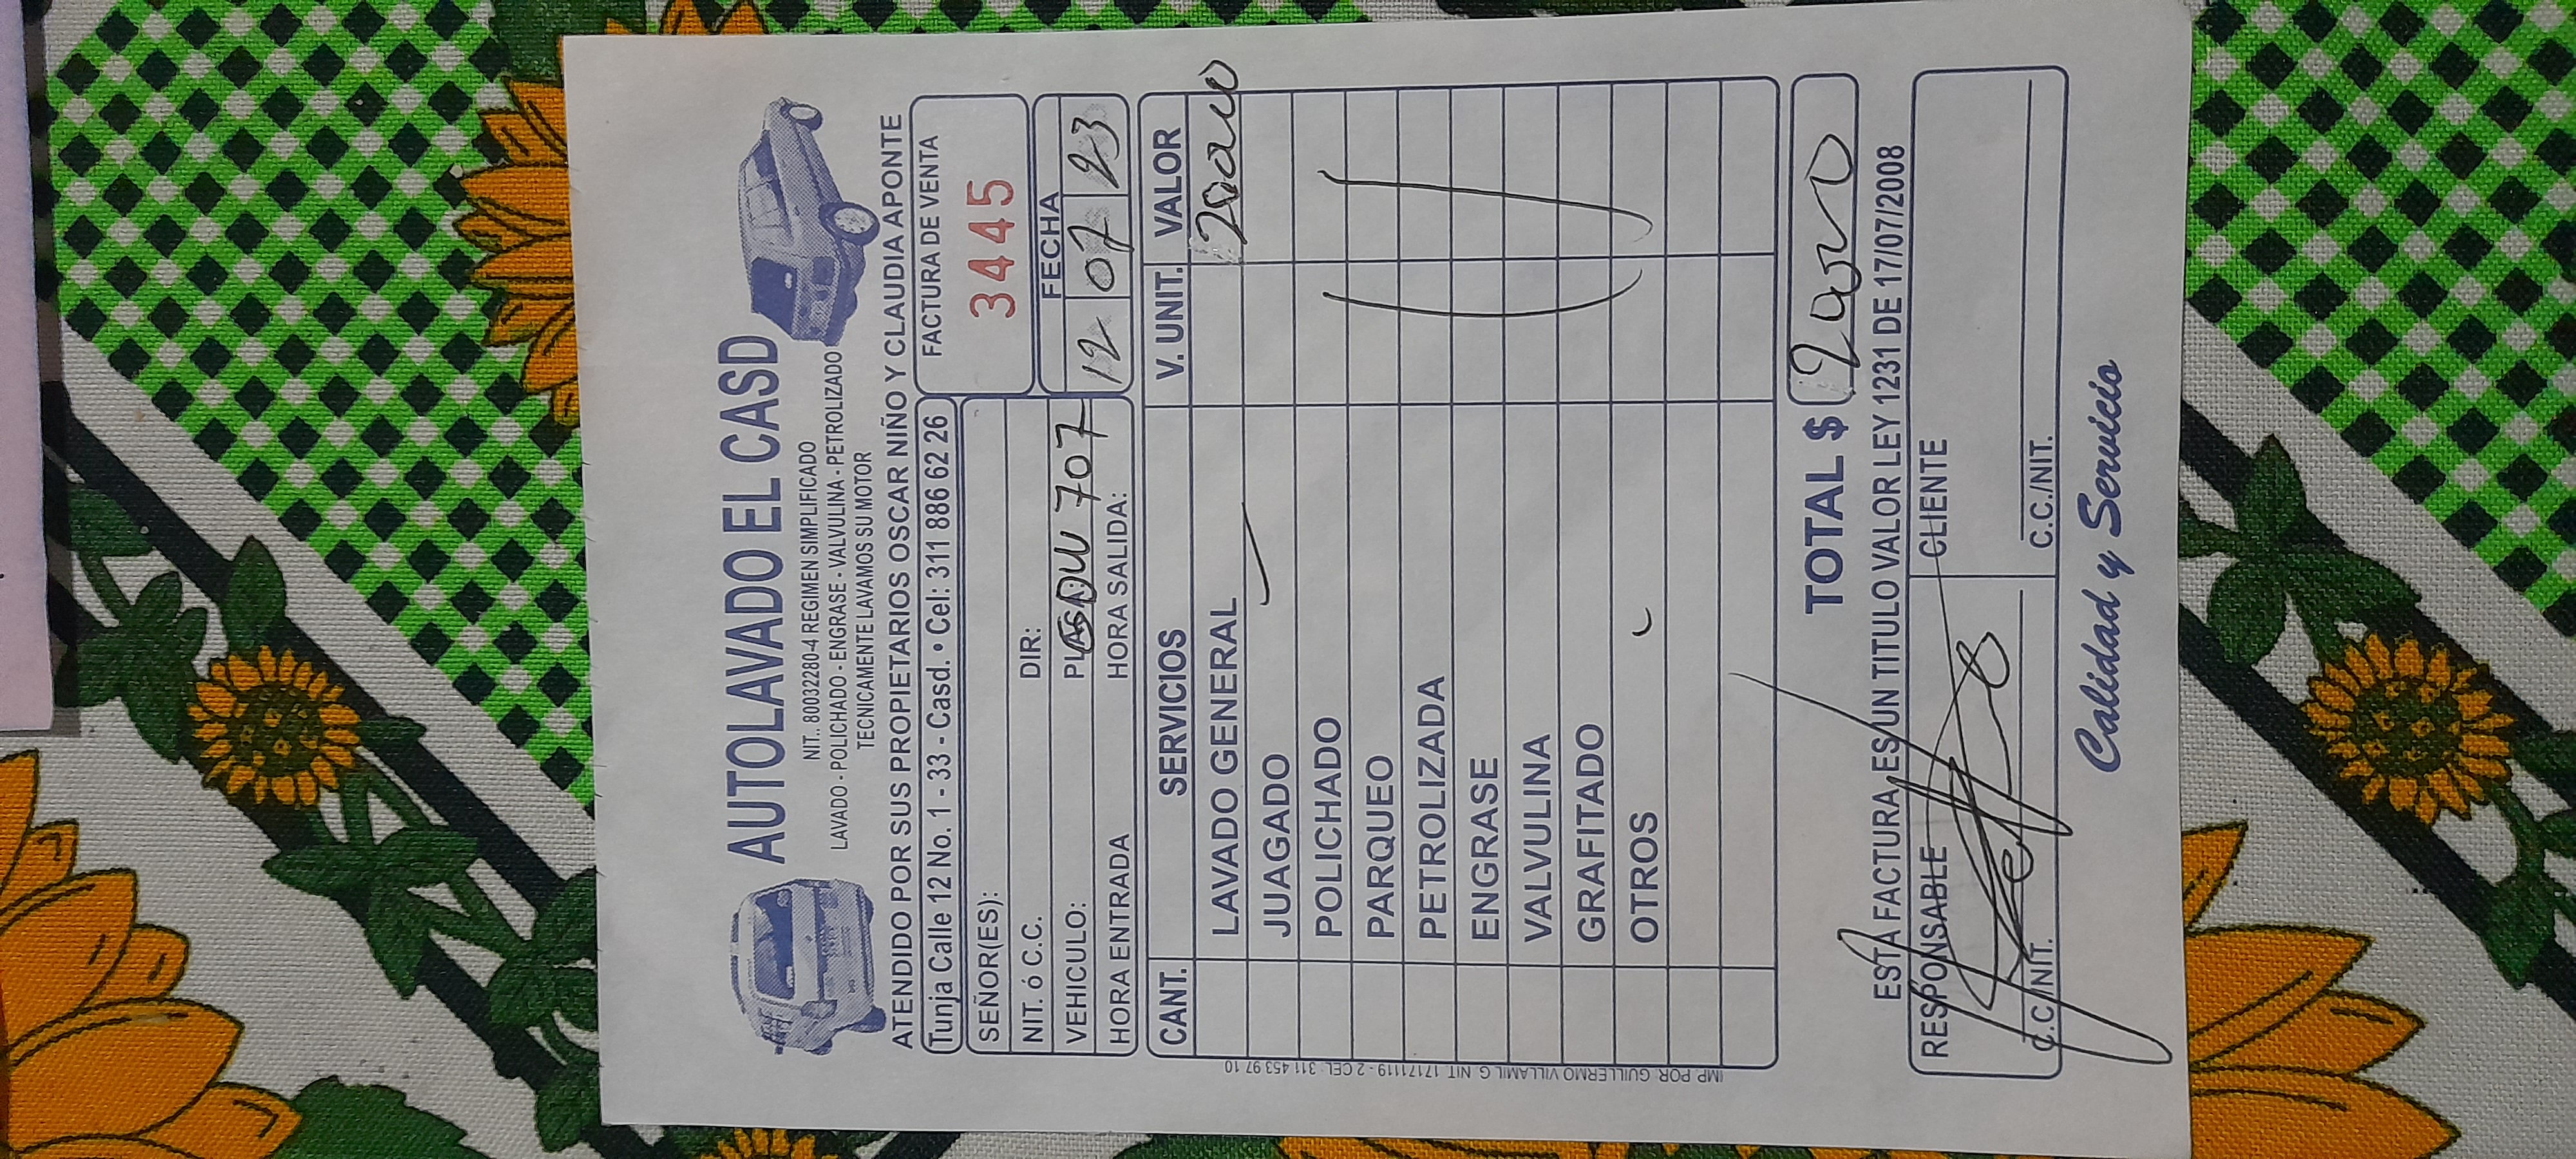 AUTOLAVADO EL CASD
NIT.. 80032280-4 REGIMEN SIMPLIFICADO
LAVADO - POLICHADO - ENGRASE - VALVULINA - PETROLIZADO
TECNICAMENTE LAVAMOS SU MOTOR
ATENDIDO POR SUS PROPIETARIOS OSCAR NIÑO Y CLAUDIA APONTE
Tunja Calle 12 No. 1 - 33 - Casd. • Cel: 311 886 62 26
FACTURA DE VENTA
3445
SEÑOR(ES):
NIT. ó C.C. DIR:
FECHA
VEHICULO: PLACA 707
12 07 23
HORA ENTRADA HORA SALIDA:
CANT. SERVICIOS V. UNIT. VALOR
LAVADO GENERAL
JUAGADO
POLICHADO
PARQUEO
PETROLIZADA
ENGRASE
VALVULINA
GRAFITADO
OTROS
TOTAL $
ESTA FACTURA ES UN TITULO VALOR LEY 1231 DE 17/07/2008
RESPONSABLE CLIENTE
C.C./NIT. C.C./NIT.
Calidad y Servicio
IMP. POR: GUILLERMO VILLAMIL G. NIT. 17171119 - 2 CEL: 311 453 97 10